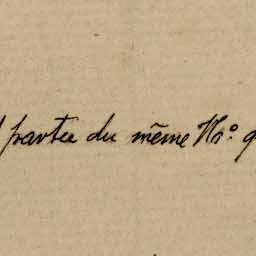 partie du même No.